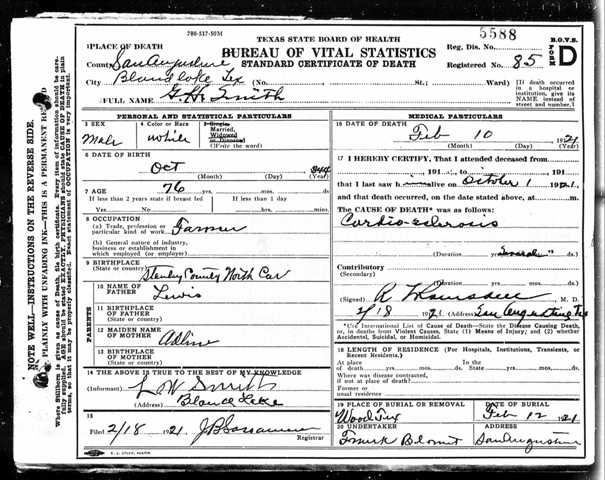 780-517-50M
TEXAS STATE BOARD OF HEALTH
BUREAU OF VITAL STATISTICS
STANDARD CERTIFICATE OF DEATH
5588
Reg. Dis. No.
Registered No. 85
B.O.V.S.
FORM D
1 PLACE OF DEATH
County San Augustine
City Bland lake Tex (No. St.; Ward)
(If death occurred in a hospital or institution, give its NAME instead of street and number.)
FULL NAME G.H. Smith
PERSONAL AND STATISTICAL PARTICULARS
3 SEX
Male
4 Color or Race
white
5 Single,
Married,
Widowed
or Divorced
(Write the word)
6 DATE OF BIRTH
Oct 844
(Month) (Day) (Year)
7 AGE
76 yrs. mos. ds.
If less than 2 years state if breast fed
If less than 1 day
Yes No hrs. min.
8 OCCUPATION
(a) Trade, profession or particular kind of work Farmer
(b) General nature of industry, business or establishment in which employed (or employer)
9 BIRTHPLACE
(State or country) Stanley County North Car
PARENTS
10 NAME OF FATHER Lewis
11 BIRTHPLACE OF FATHER
(State or country)
12 MAIDEN NAME OF MOTHER
13 BIRTHPLACE OF MOTHER
14 THE ABOVE IS TRUE TO THE BEST OF MY KNOWLEDGE
(Informant) L W Smith
(Address) Bland Lake
15
Filed 2/18 1921
Registrar
MEDICAL PARTICULARS
16 DATE OF DEATH
Feb 10 1921
(Month) (Day) (Year)
17 I HEREBY CERTIFY, That I attended deceased from
, 191 , to , 191
that I last saw h alive on October 1 1921,
and that death occurred, on the date stated above, at m.
The CAUSE OF DEATH* was as follows:
Cardio-sclerosis
(Duration) ds.
Contributory
(Secondary)
(Duration) yrs. mos. ds.
(Signed) M. D.
2/18 1921 (Address) San Augustine Tex
*Use International List of Cause of Death—State the Disease Causing Death, or, in deaths from Violent Causes, State (1) Means of Injury; and (2) whether Accidental, Suicidal, or Homicidal.
18 LENGTH OF RESIDENCE (For Hospitals, Institutions, Transients, or Recent Residents.)
At place of death yrs. mos. ds. In the State yrs. mos. ds.
Where was disease contracted, if not at place of death?
Former or usual residence
19 PLACE OF BURIAL OR REMOVAL
DATE OF BURIAL
Feb 12 1921
20 UNDERTAKER
Frank Blount
ADDRESS
San Augustine
NOTE WELL—INSTRUCTIONS ON THE REVERSE SIDE.
PLAINLY WITH UNFADING INK—THIS IS A PERMANENT RECORD